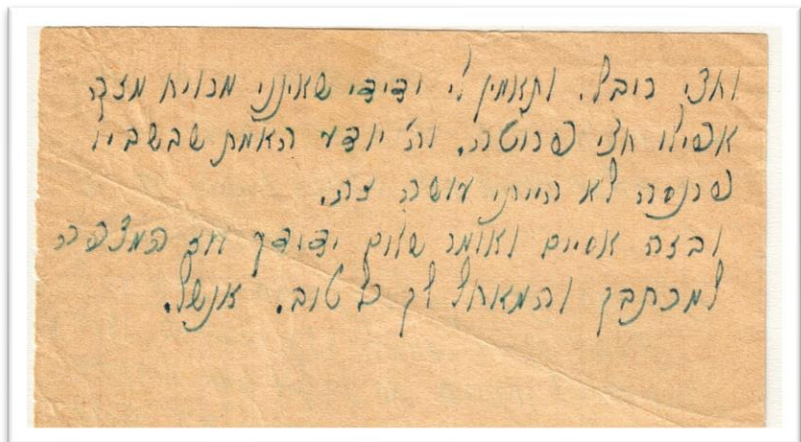 וחצי רובל. ותאמין לי ידידי שאינני מרויח מזה
אפילו חצי פרוטה. וה' יודע האמת שבשביל
פרנסה לא הייתי עושה זה.
ובזה אסיים ואומר שלום ידידך המצפה
למכתבך והמאחל לך כל טוב. אנשל.